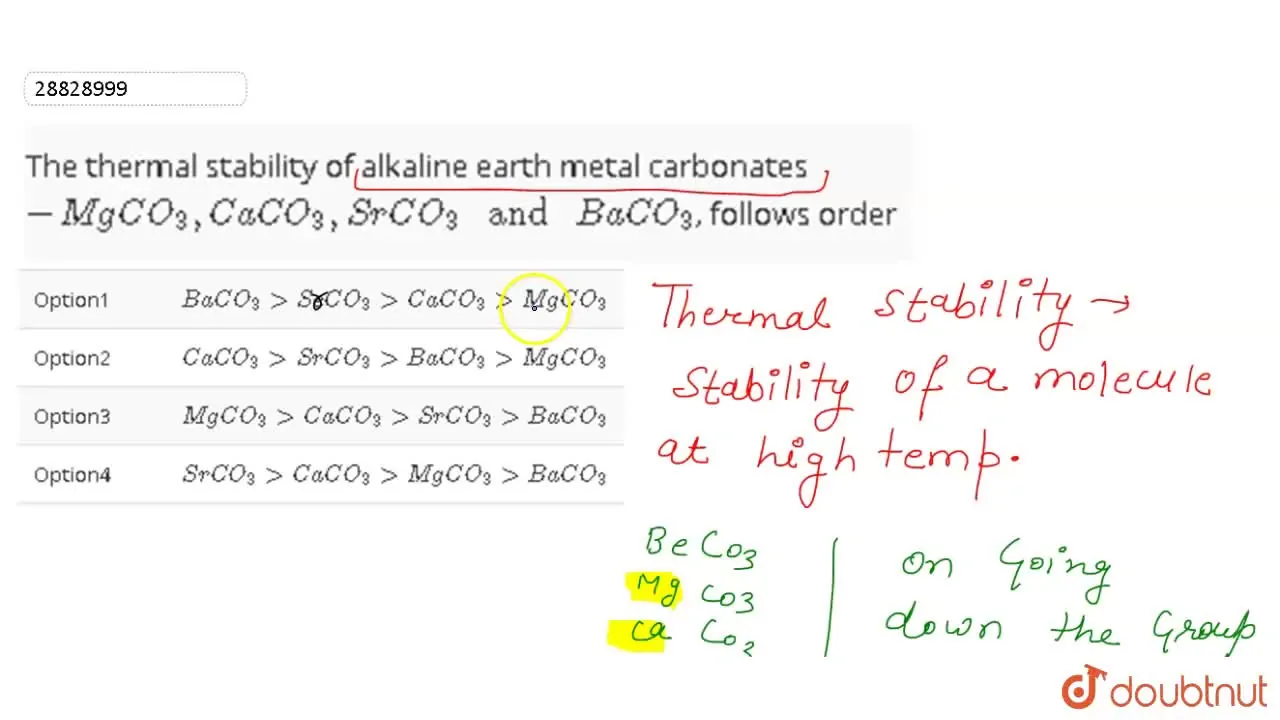 28828999
The thermal stability of alkaline earth metal carbonates
– MgCO₃, CaCO₃, SrCO₃ and BaCO₃, follows order
Option1 BaCO₃ > SrCO₃ > CaCO₃ > MgCO₃
Option2 CaCO₃ > SrCO₃ > BaCO₃ > MgCO₃
Option3 MgCO₃ > CaCO₃ > SrCO₃ > BaCO₃
Option4 SrCO₃ > CaCO₃ > MgCO₃ > BaCO₃
Thermal stability →
stability of a molecule
at high temp.
BeCO₃
MgCO₃
CaCO₃
on Going
down the Group
doubtnut